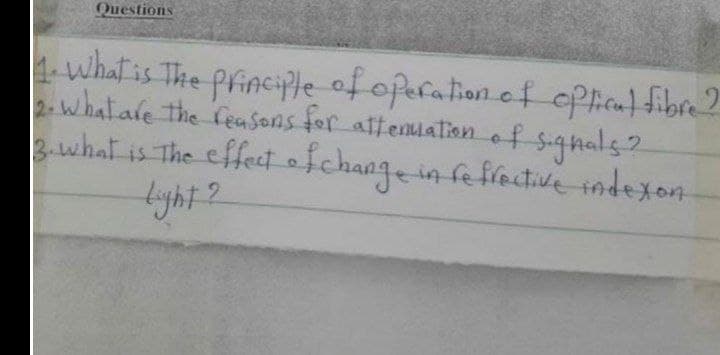 Questions
1. What is The principle of operation of optical fibre?
2. What are the reasons for attenuation of signals?
3. what is The effect of change in refrective index on
light?